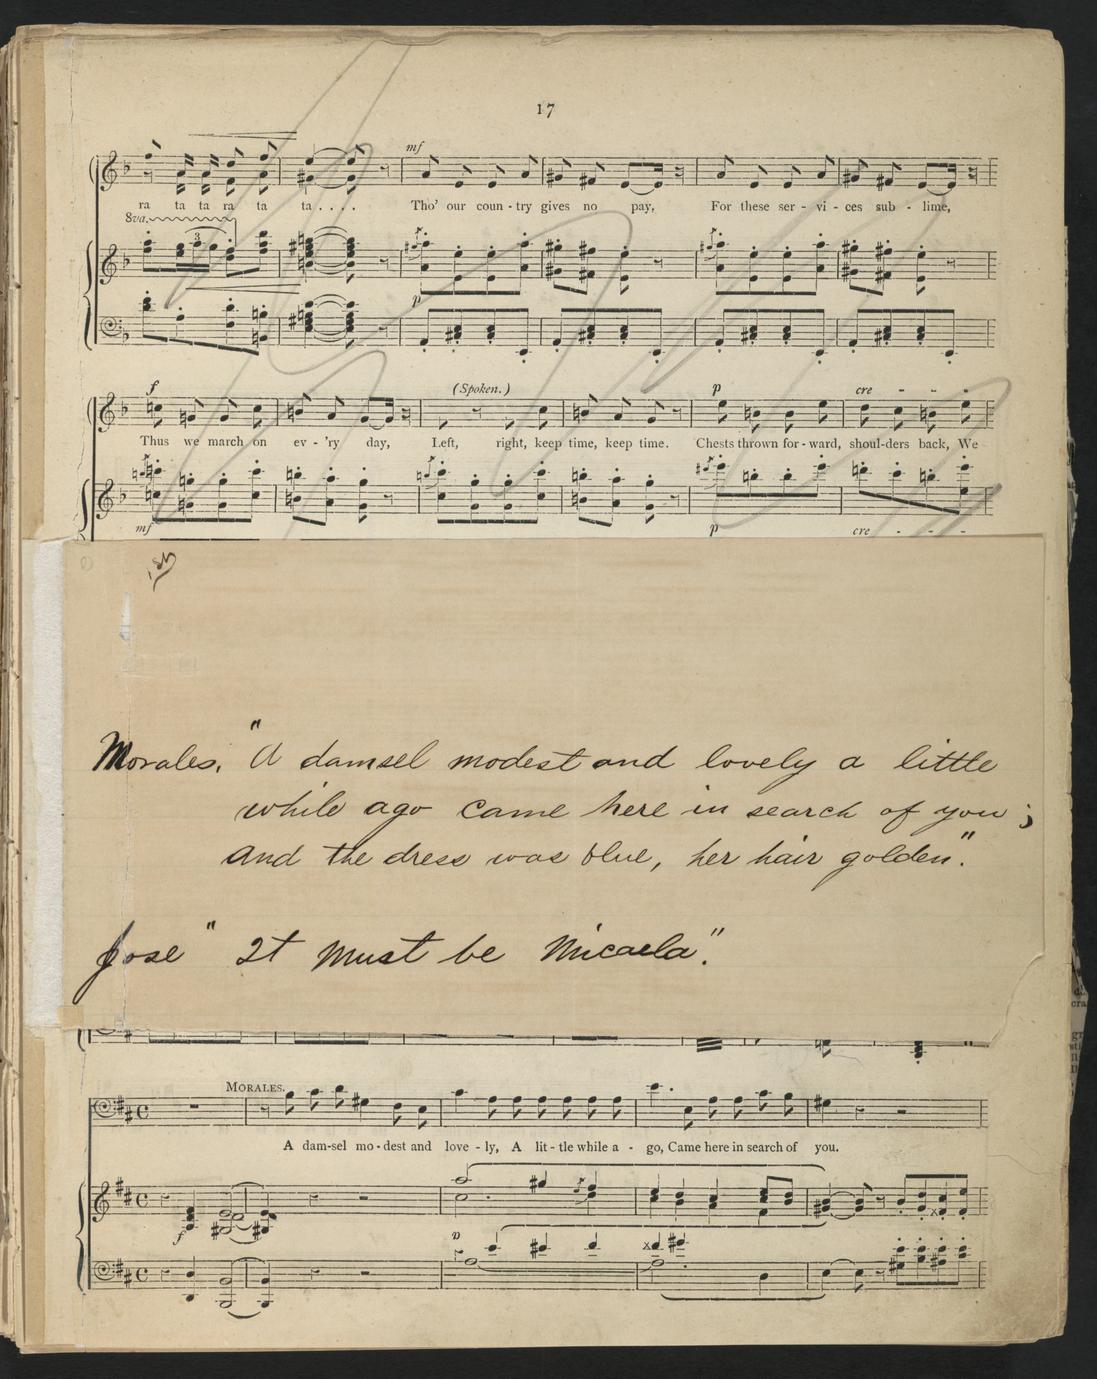 17
mf
ra ta ta ra ta ta . . . . Tho' our coun - try gives no pay, For these ser - vi - ces sub - lime,
8va.
3
p
f (Spoken.) p cre - - -
Thus we march on ev - 'ry day, Left, right, keep time, keep time. Chests thrown for - ward, shoul-ders back, We
mf p cre - - -
Morales. "A damsel modest and lovely a little
while ago came here in search of you;
and the dress was blue, her hair golden".
Jose " It must be Micaela".
MORALES.
A dam-sel mo - dest and love - ly, A lit - tle while a - go, Came here in search of you.
f
p